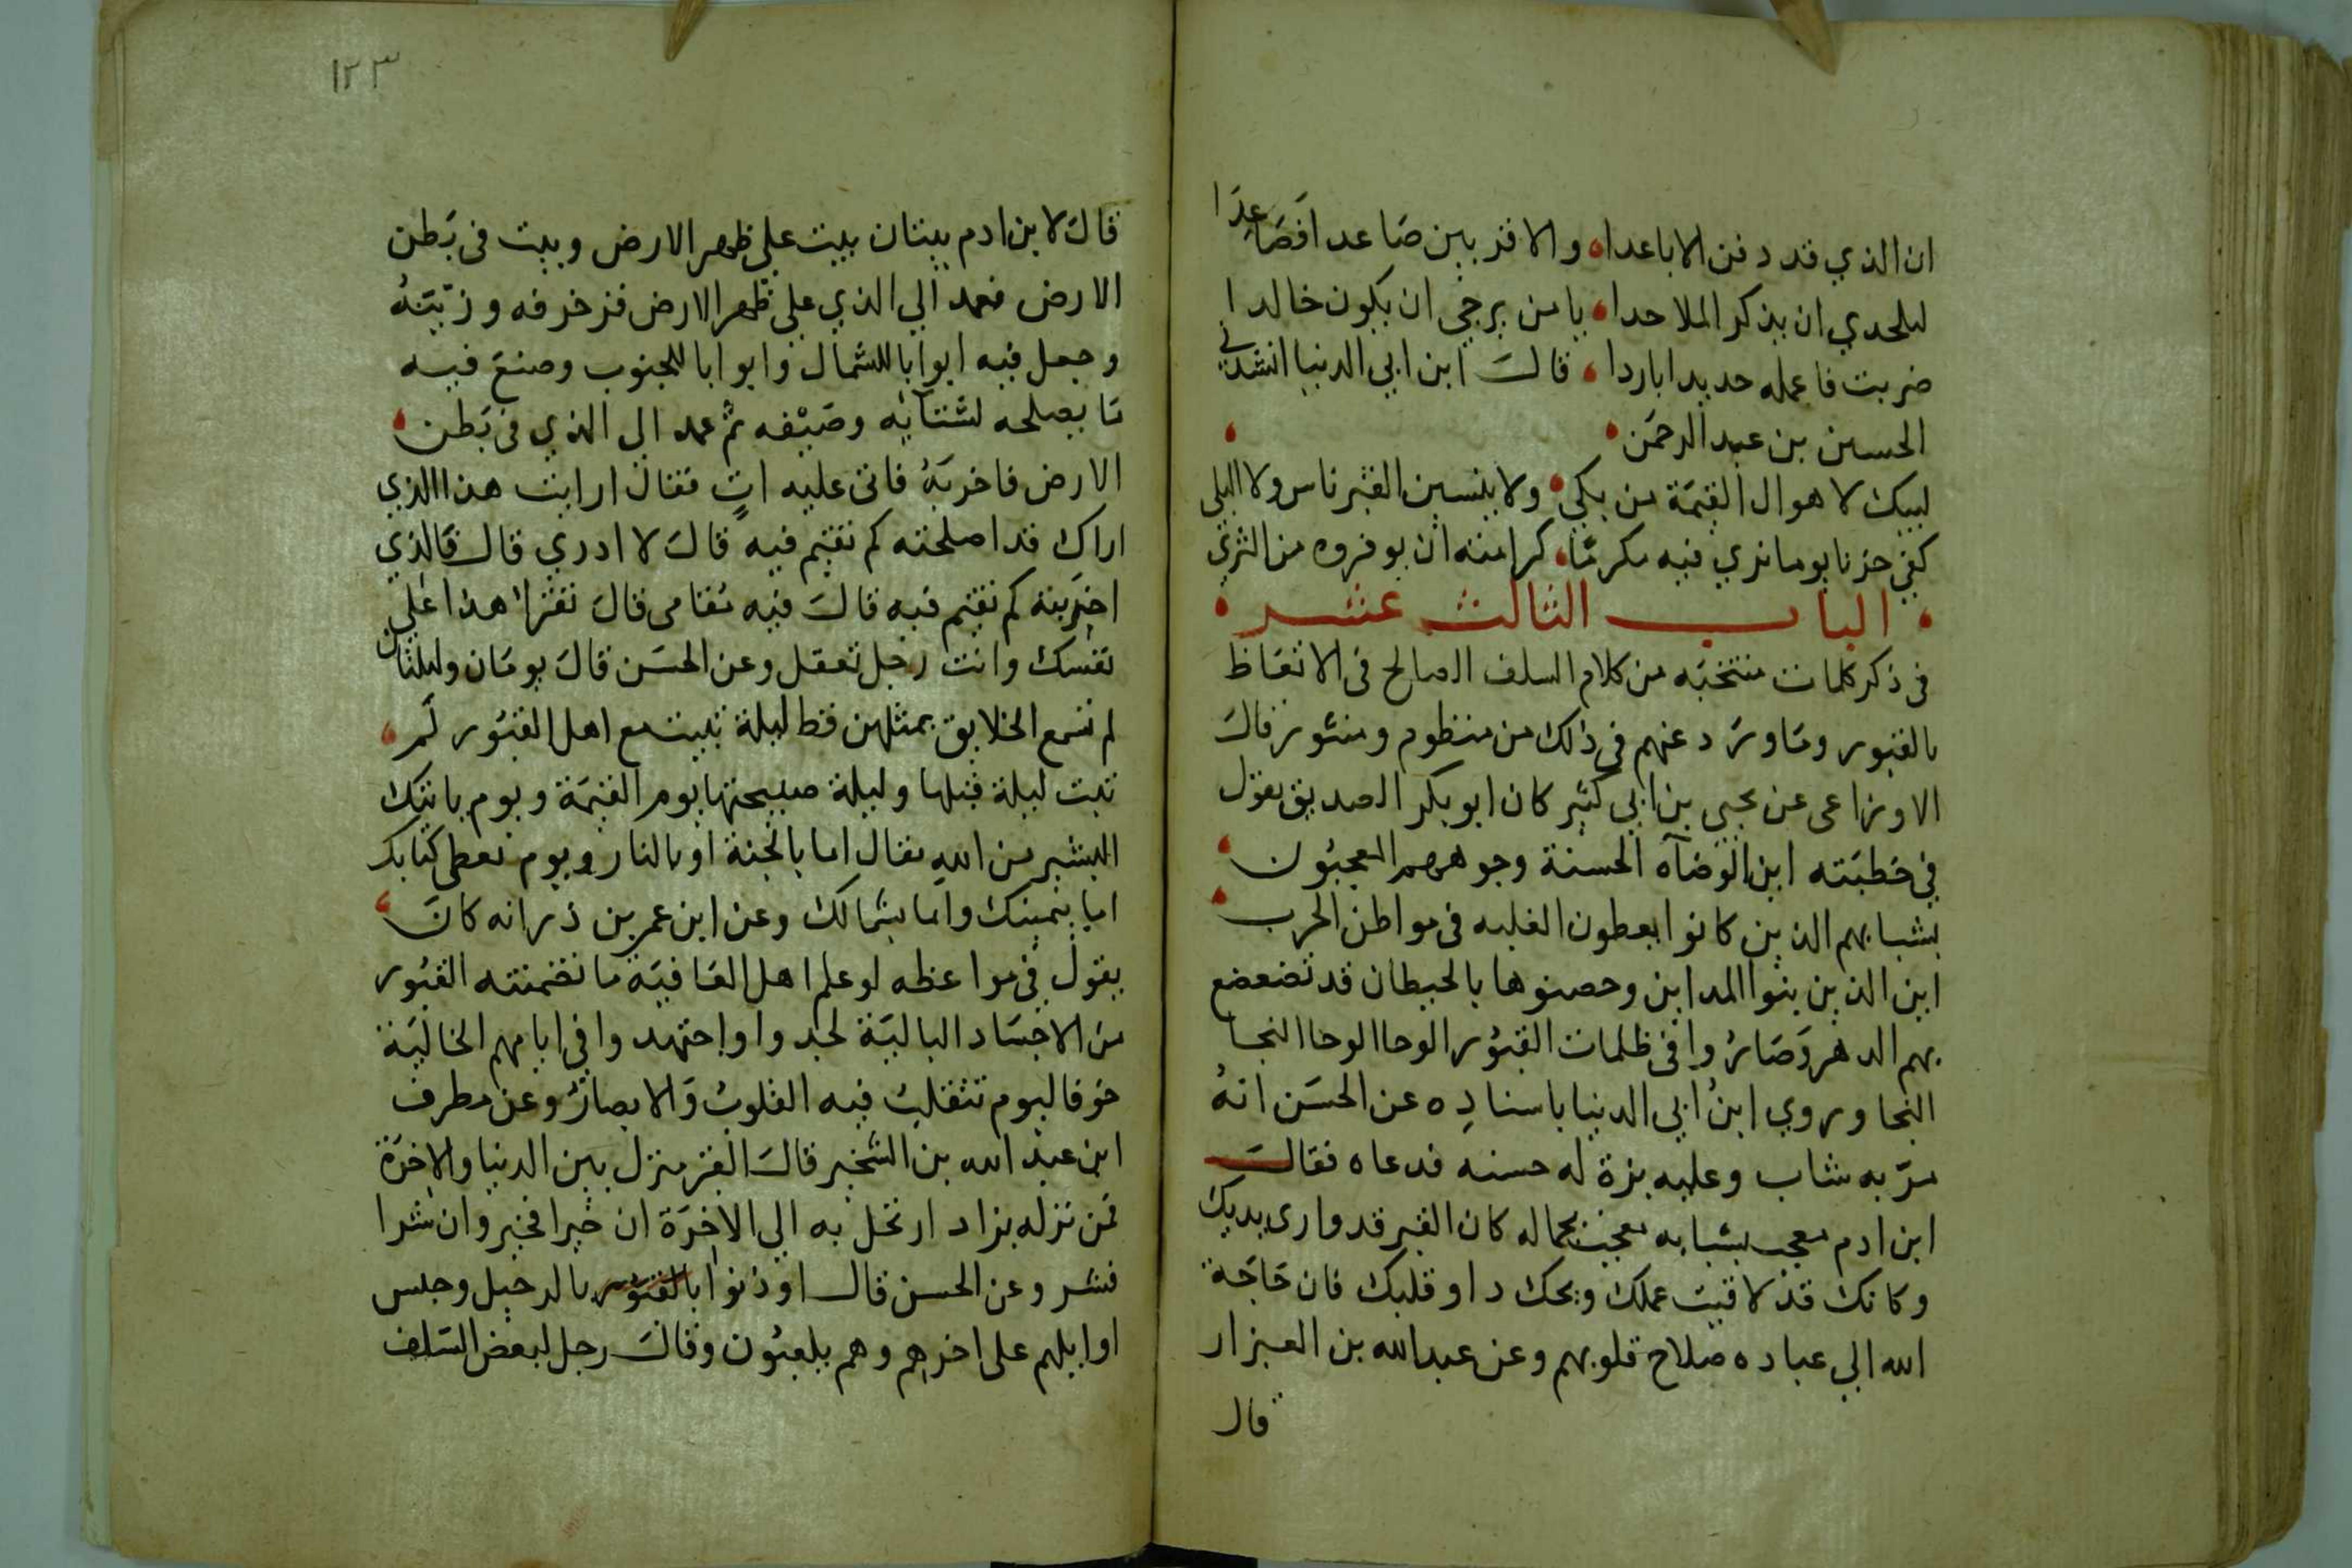 ان الذي قد دفن الاباعدا والاقربين صاعد افصاعدا
لملحدي ان يذكر الملاحدا يا من يرجى ان يكون خالدا
ضربت فاعمله حديدا باردا قال ابن ابي الدنيا انشدني
الحسين بن عبد الرحمن
لبيك لاهوال القيمة من بكى ولا ينسين القبر ناس ولا البلى
كفى حزنا يوما نرى فيه مكرما كرامته ان يوفروه من الثرى
الباب الثالث عشر
في ذكر كلمات منتخبه من كلام السلف الصالح في الاتعاظ
بالقبور وما ورد عنهم في ذلك من منظوم ومنثور قال
الاوزاعي عن يحيى بن ابي كثير كان ابو بكر الصديق يقول
في خطبته اين الوضآه الحسنة وجوههم المعجبون
بشبابهم الذين كانوا يعطون الغلبه في مواطن الحرب
اين الذين بنوا المداين وحصنوها بالحيطان قد تضعضع
بهم الدهر وصاروا في ظلمات القبور الوحا الوحا النجا
النجا وروي ابن ابي الدنيا باسناده عن الحسن انه
مر به شاب وعليه بزة له حسنه فدعاه فقال
ابن ادم معجب بشبابه معجب بجماله كان القبر قد وارى بديك
وكانك قد لاقيت عملك ويحك داو قلبك فان حاجة
الله الي عباده صلاح قلوبهم وعن عبد الله بن العيزار
قال
١٢٣
قال لابن ادم بيتان بيت على ظهر الارض وبيت في بطن
الارض فعمد الي الذي على ظهر الارض فزخرفه وزينه
وجعل فيه ابوابا للشمال وابوابا للجنوب وصنع فيه
ما يصلحه لشتآئه وصيفه ثم عمد الى الذي في بطن
الارض فاخربه فاتى عليه ات فقال ارايت هذا الذي
اراك قد اصلحته كم تقيم فيه قال لا ادري قال فالذي
اخربته كم تقيم فيه قال فيه مقامى قال تقر بهذا على
نفسك وانت رجل تعقل وعن الحسن قال يومان وليلتان
لم تسمع الخلايق بمثلهن قط ليلة تبيت مع اهل القبور لم
تبت ليلة قبلها وليلة صبيحتها يوم القيمة ويوم ياتيك
البشير من الله تعالى اما بالجنة او بالنار ويوم تعطى كتابك
اما بيمينك واما بشمالك وعن ابن عمر بن ذر انه كان
يقول في مواعظه لو علم اهل العافية ما تضمنته القبور
من الاجساد البالية لجدوا واجتهدوا في ايامهم الخالية
خوفا ليوم تتقلب فيه القلوب والابصار وعن مطرف
ابن عبد الله بن الشخير قال القبر منزل بين الدنيا والاخرة
فمن نزله بزاد ارتحل به الي الاخرة ان خيرا فخير وان شرا
فشر وعن الحسن قال اوذنوا بالقبور بالرحيل وجلس
اوايلهم على اخرهم وهم يلعبون وقال رجل لبعض السلف